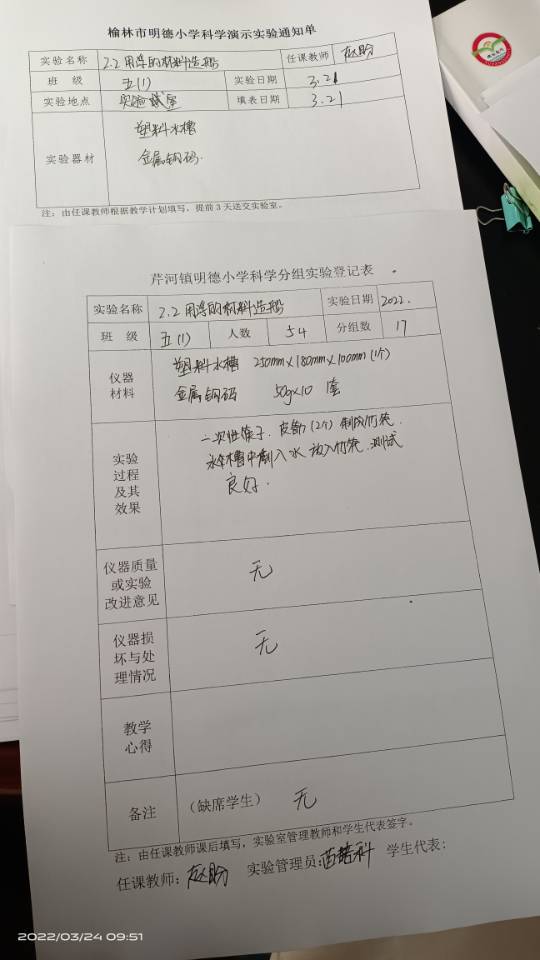 榆林市明德小学科学演示实验通知单
实验名称 2.2 用浮的材料造船 任课教师
班 级 五(1) 实验日期 3.21
实验地点 实验室 填表日期 3.21
实验器材 塑料水槽
金属钩码.
注:由任课教师根据教学计划填写,提前3天送交实验室。
芹河镇明德小学科学分组实验登记表
实验名称 2.2 用浮的材料造船 实验日期 2022.
班 级 五(1) 人数 54 分组数 17
仪器材料 塑料水槽 250mm×180mm×100mm(1个)
金属钩码 50g×10 套
实验过程及其效果 一次性筷子.皮筋(2个)制成竹筏.
水槽中倒入水 放入竹筏.测试
良好.
仪器质量或实验改进意见 无
仪器损坏与处理情况 无
教学心得
备注 (缺席学生) 无
注:由任课教师课后填写,实验室管理教师和学生代表签字。
任课教师: 实验管理员: 学生代表:
2022/03/24 09:51